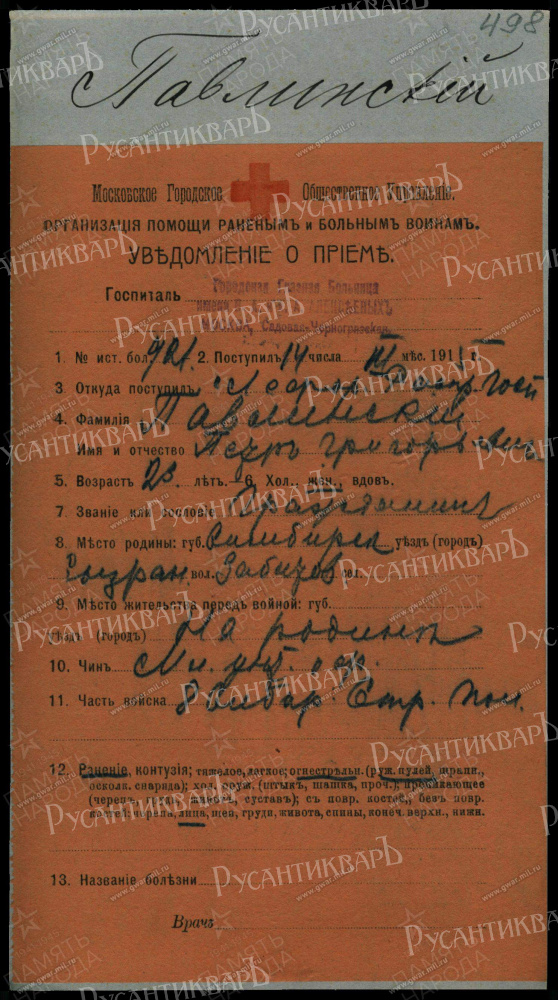 498
Павлинскій
Московское Городское Общественное Управленіе.
Организація помощи раненымъ и больнымъ воинамъ.
Увѣдомленіе о пріемѣ.
Госпиталь Городская Глазная Больница
имени
Садовая-Черногрязская
1. № ист. бол. 2. Поступилъ 14 числа мѣс. 191
3. Откуда поступилъ
4. Фамилія Павлинскій
Имя и отчество Петръ Григорьевич
5. Возрастъ 23 лѣтъ. 6. Хол., жен., вдов.
7. Званіе или сословіе
8. Мѣсто родины: губ. Симбирск уѣздъ (городъ)
Сызран вол. сел.
9. Мѣсто жительства передъ войной: губ.
уѣздъ (городъ) На родинѣ
10. Чинъ Мл. унт. оф.
11. Часть войска Стр. пол.
12. Раненіе, контузія; тяжелое, легкое; огнестрѣльн. (руж. пулей, шрапн.,
оскол. снаряда); хол. оруж. (штыкъ, шашка, проч.); проникающее
(черепъ, грудь, животъ, суставъ); съ повр. костей, безъ повр.
костей: черепа, лица, шеи, груди, живота, спины, конеч. верхн., нижн.
13. Названіе болѣзни
Врачъ
РусантикварЪ
ПАМЯТЬ НАРОДА
www.gwar.mil.ru